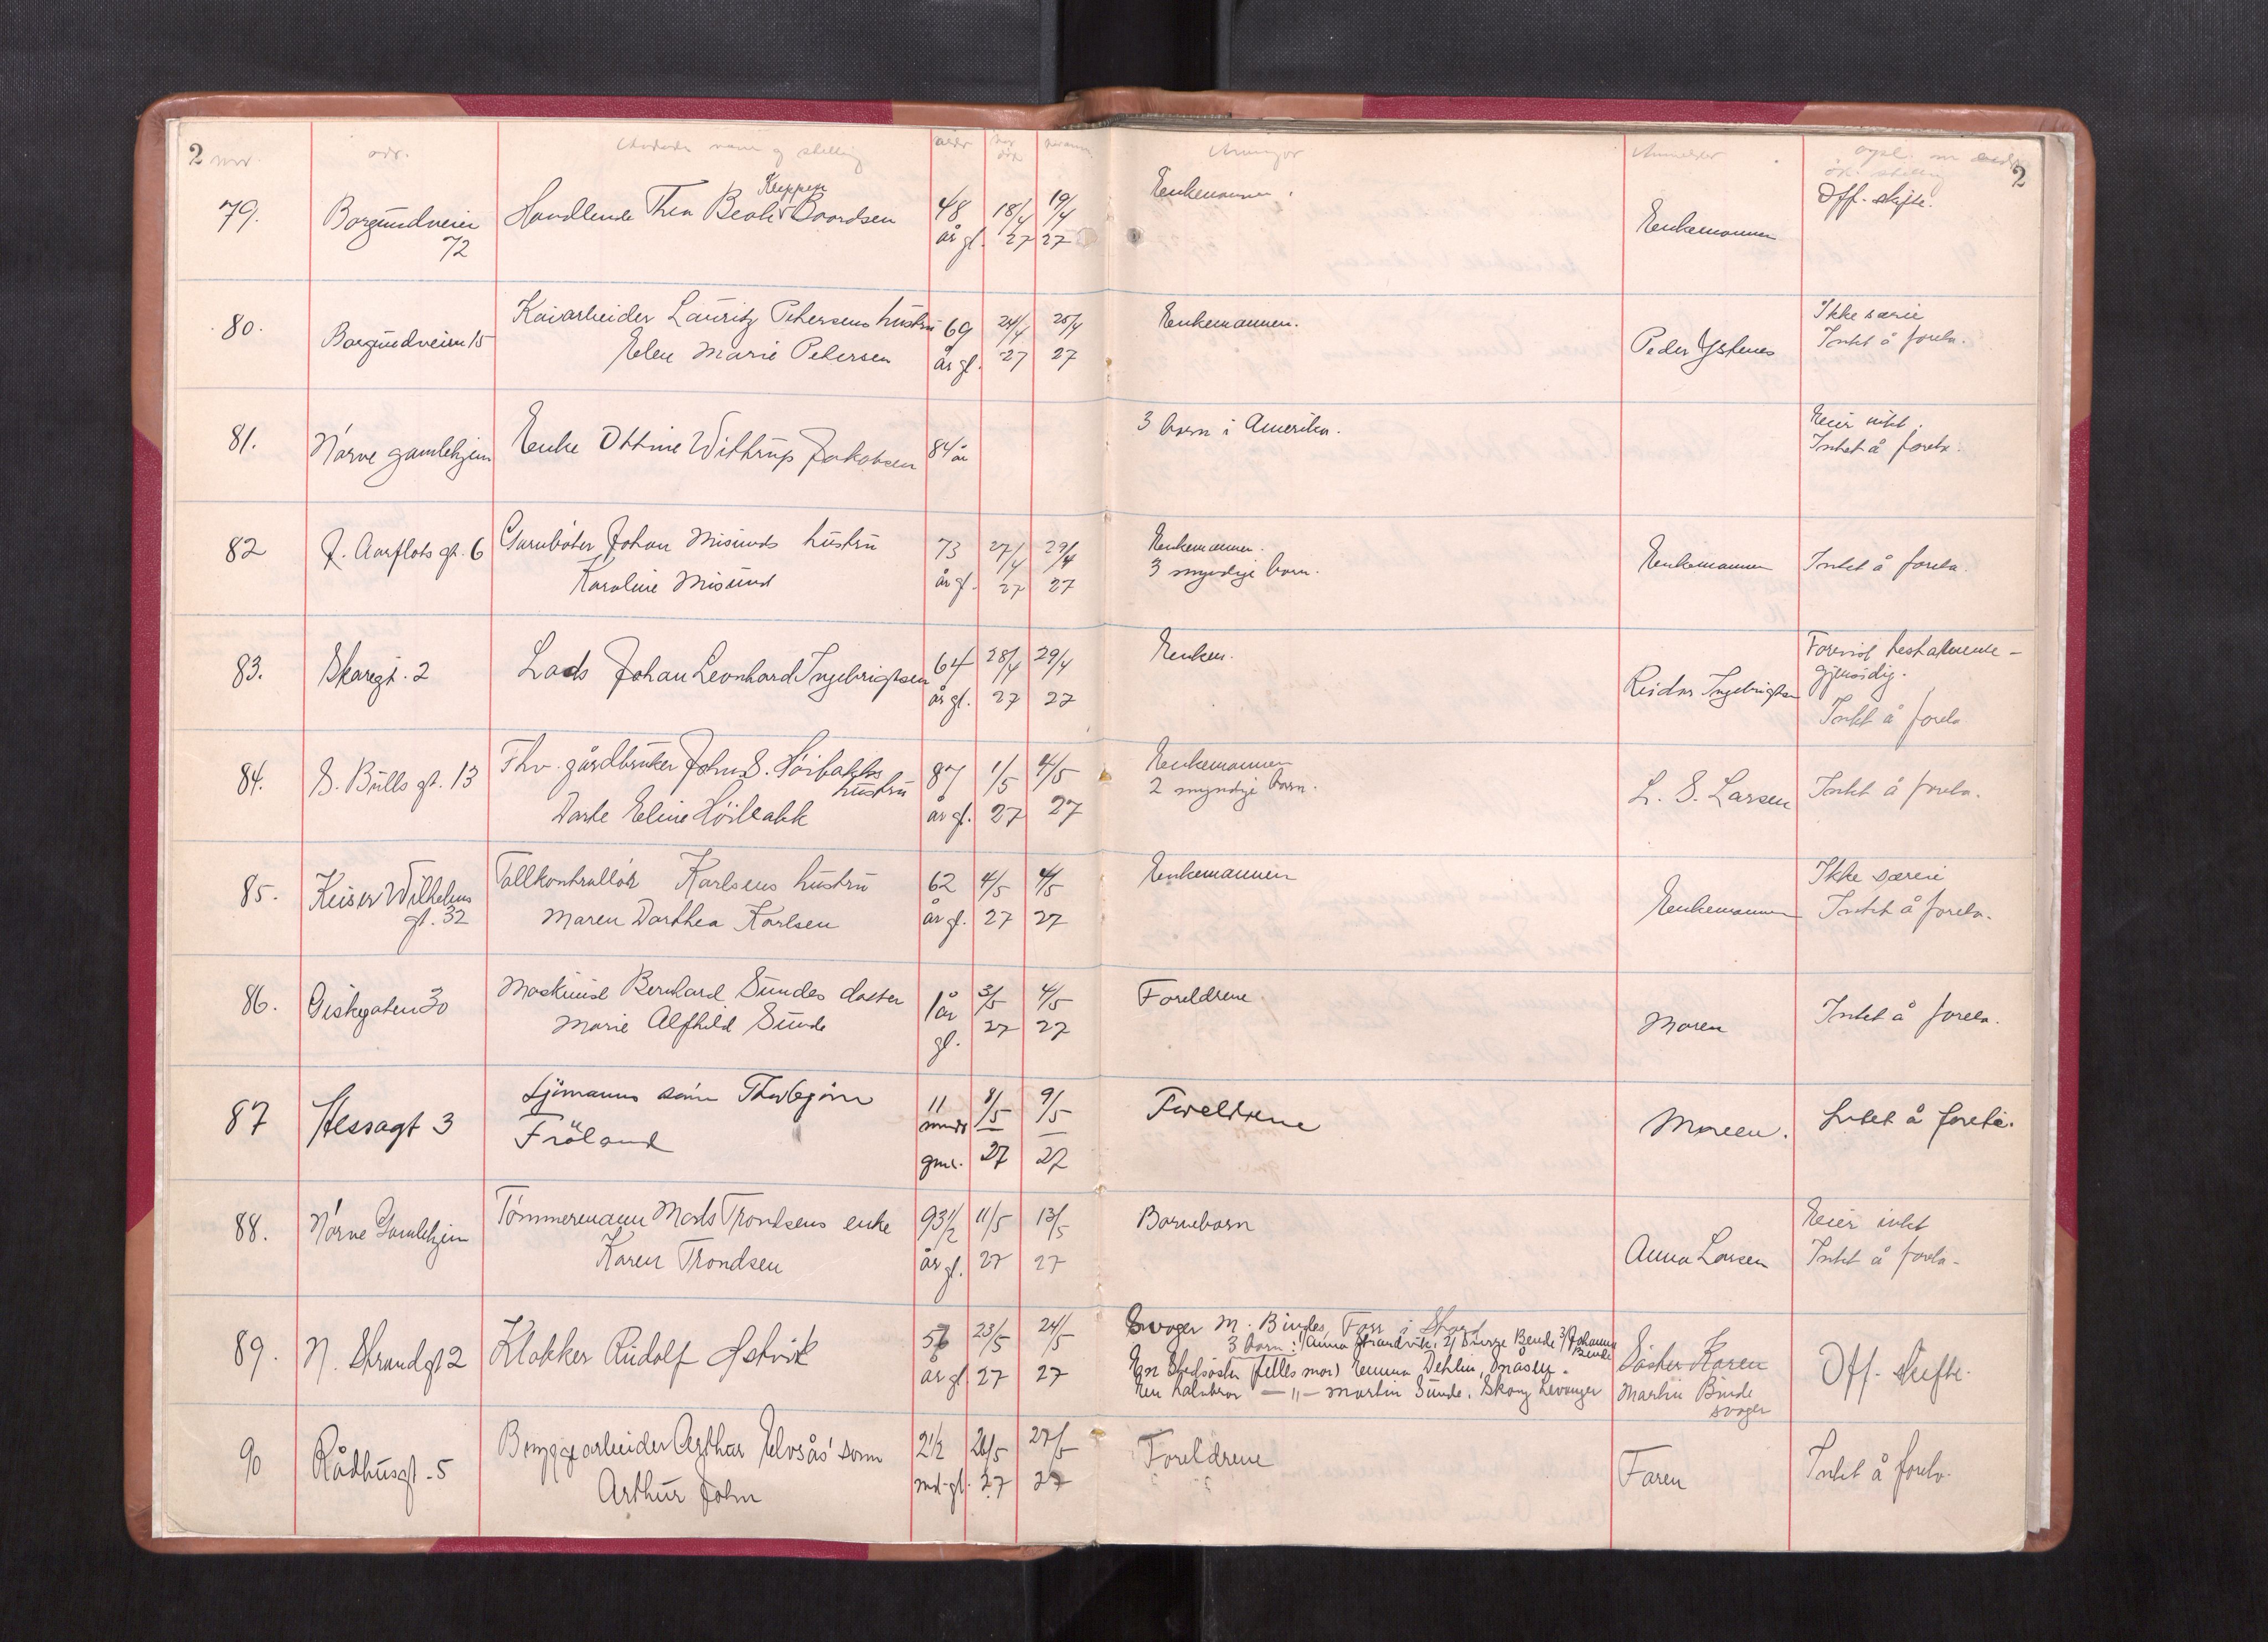 2 nr. adr. Avdødes navn og stilling alder 2
79. Borgundveien 72 Handlende Thea Beate Kleppen Baardsen 48 år gl. 18/4 27 19/4 27 Enkemannen. Enkemannen Off. skifte.
80. Borgundveien 15 Kaiarbeider Lauritz Petersens hustru 69 år gl. 24/4 27 25/4 27 Enkemannen. Peder Ystenes Ikke særeie
Elen Marie Petersen Intet å foreta.
81. Nørve gamlehjem Enke Ottine Withrup Jakobsen 84 år 3 barn i Amerika. Eier intet.
Intet å foreta.
82 R. Aarflots gt. 6 Garnbøter Johan Misunds hustru 73 år gl. 27/4 27 29/4 27 Enkemannen. Enkemannen Intet å foreta.
Karoline Misund 3 myndige barn.
83. Skaregt. 2 Lods Johan Leonhard Ingebrigtsen 64 år gl. 28/4 27 29/4 27 Enken. Reidar Ingebrigtsen Forevist testamente -
gjensidig.
Intet å foreta
84. S. Bulls gt. 13 Fhv. gårdbruker John S. Høibakks hustru 87 år gl. 1/5 27 4/5 27 Enkemannen L. S. Larsen Intet å foreta.
Darte Eline Høibakk 2 myndige barn.
85. Keiser Wilhelms gt. 32 Tollkontrollør Karlsens hustru 62 år gl. 4/5 27 4/5 27 Enkemannen Enkemannen Ikke særeie
Maren Dorthea Karlsen Intet å foreta.
86. Giskegaten 30 Maskinist Bernhard Sundes datter 1 år gl. 3/5 27 4/5 27 Foreldrene Moren Intet å foreta.
Marie Alfhild Sunde
87 Hessagt 3 Sjømanns sønn Thorbjørn 11 mndr gml. 8/5 27 9/5 27 Foreldrene Moren. Intet å foreta.
Frøland
88. Nørve Gamlehjem Tømmermann Mads Trondsens enke 93 1/2 år gl. 11/5 27 13/5 27 Barnebarn Anna Larsen Eier intet
Karen Trondsen Intet å foreta.
89. N. Strandgt 2 Klokker Rudolf Østvik 57 år gl 23/5 27 24/5 27 Svoger M. Bindes
3 barn: 1/ Anna Strandvik, 2/ Bende 3/ Johanna Bende
En Stedsøster (felles mor) Emma Dehlin, Snåsen. Søster Karen Off. skifte.
En halvbror — „ — Martin Sunde, Skogn Levanger Martin Binde
svoger
90 Rådhusgt. 5 Bryggearbeider Arthur Elvsås' sønn 2 1/2 md. gl. 26/5 27 27/5 27 Foreldrene Faren Intet å foreta.
Arthur John